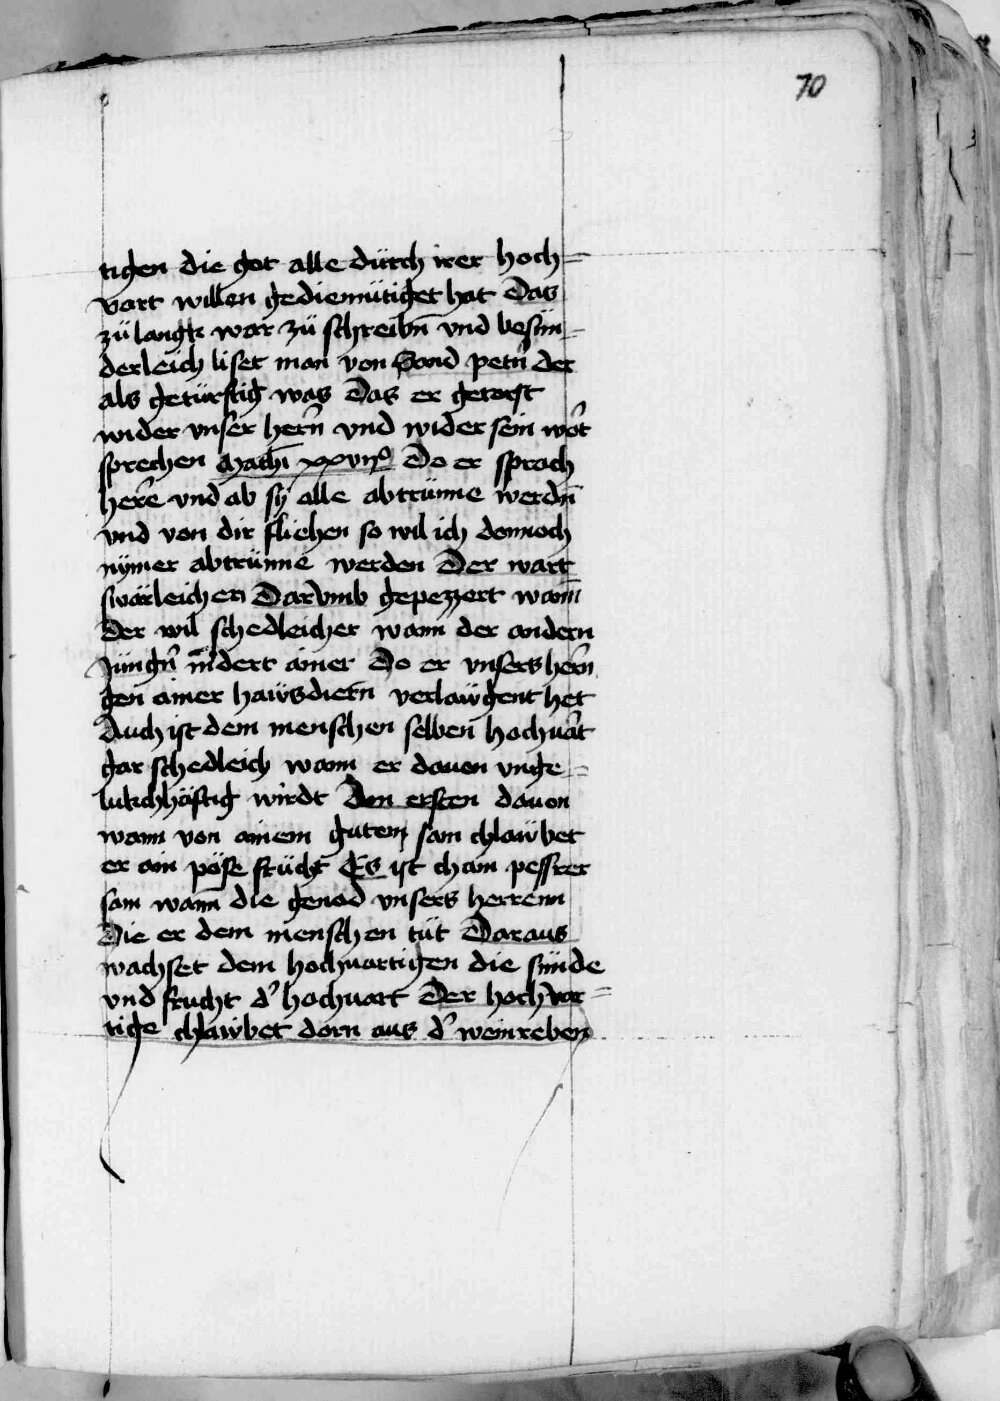 70
tigen die got alle dürch irer hoch=
vart willen gediemütiget hat Das
zü langk wär zü schreibn̄ vnd besün=
derleich liset man von Sand petn̄ der
als getürstig was Das er getorst
wider vnser hern̄ vnd wider sein wort
sprechen Mathi xxviͦ Do er sprach
here vnd ab sÿ alle abtrünne werdn̄
vnd von dir fliehen so wil ich dennoch
nÿmer abtrünne werden Der wart
swärleichen Darvmb gepezzert wann̄
der vil schedleicher wann der andern
Jüngn̄ indert ainer Do er vnsers hern̄
gen ainer hawsdiern̄ verlawgent het
Auch ist dem menschen selben hochuart
gar schedleich wann er dauon vnge=
lukchhäftig wirdt Den ersten dauon
wann von ainem gutem sam chlawbet
er ain pöse frücht Es ist chain pessrer
sam wann̄ die genad vnsers herrenn
Die er dem menschen tüt Daraus
wachset dem hochuartigen die sünde
vnd frucht d' hochuart Der hochvar=
tige chlawbet dorn aus d' weinreben